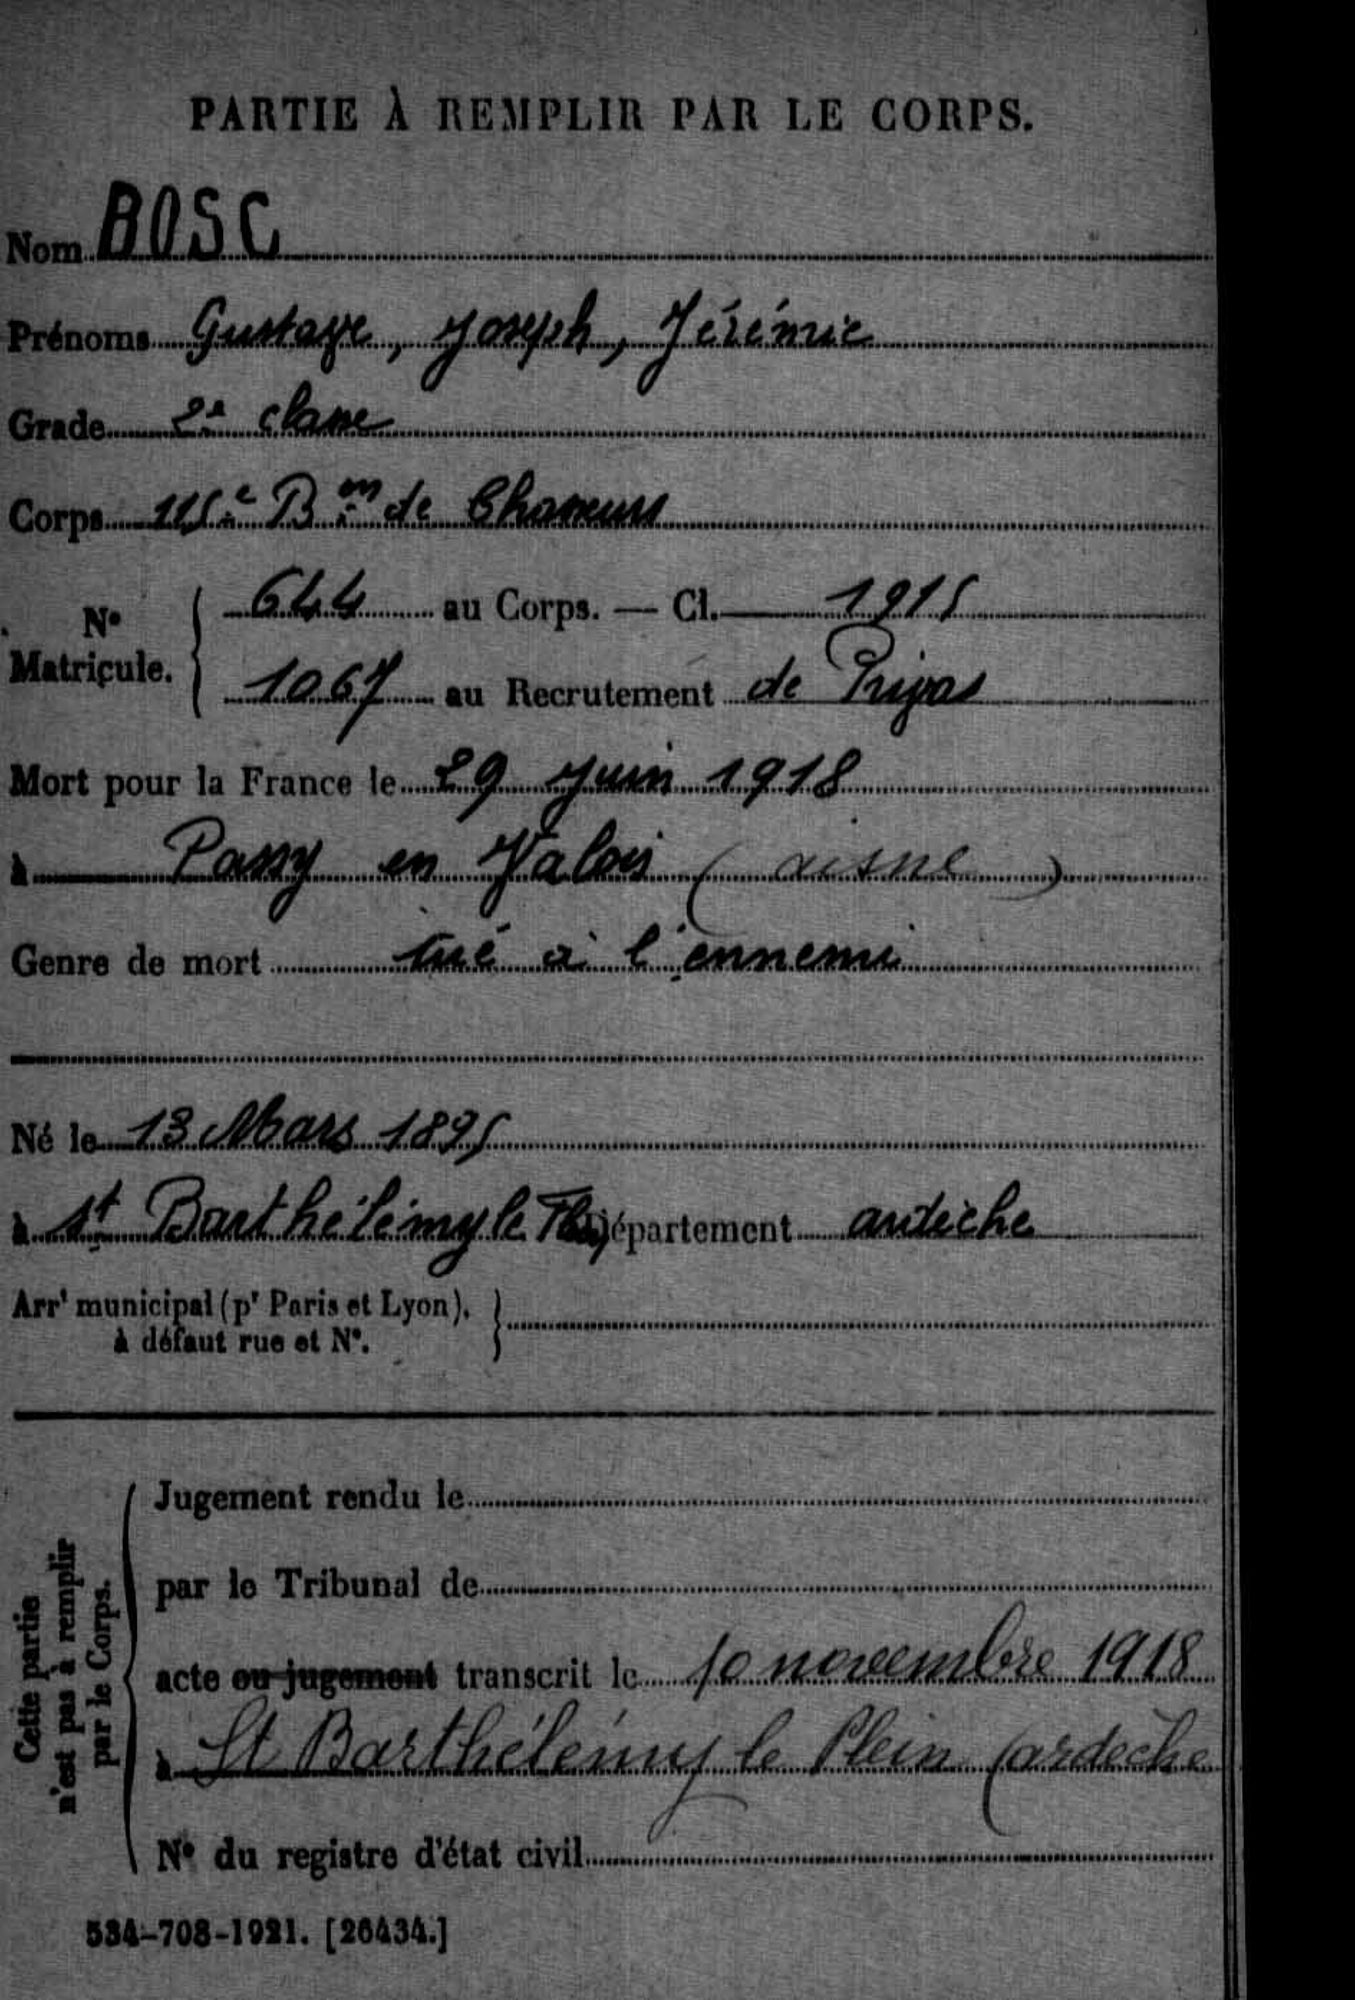 PARTIE À REMPLIR PAR LE CORPS.
Nom BOSC
Prénoms Gustave, Joseph, Jérémie
Grade 2e classe
Corps 115e Bon de Chasseurs
No Matricule. { 644 au Corps. — Cl. 1915
1067 au Recrutement de Privas
Mort pour la France le 29 Juin 1918
à Passy en Valois (aisne)
Genre de mort tué à l'ennemi
Né le 13 Mars 1895
à St Barthélémy le Département ardèche
Arrt municipal (pr Paris et Lyon),
à défaut rue et No.
Cette partie
n'est pas à remplir
par le Corps.
Jugement rendu le
par le Tribunal de
acte ou jugement transcrit le 10 novembre 1918
à St Barthélémy le Plein (ardèche
No du registre d'état civil
534-708-1921. [26434.]